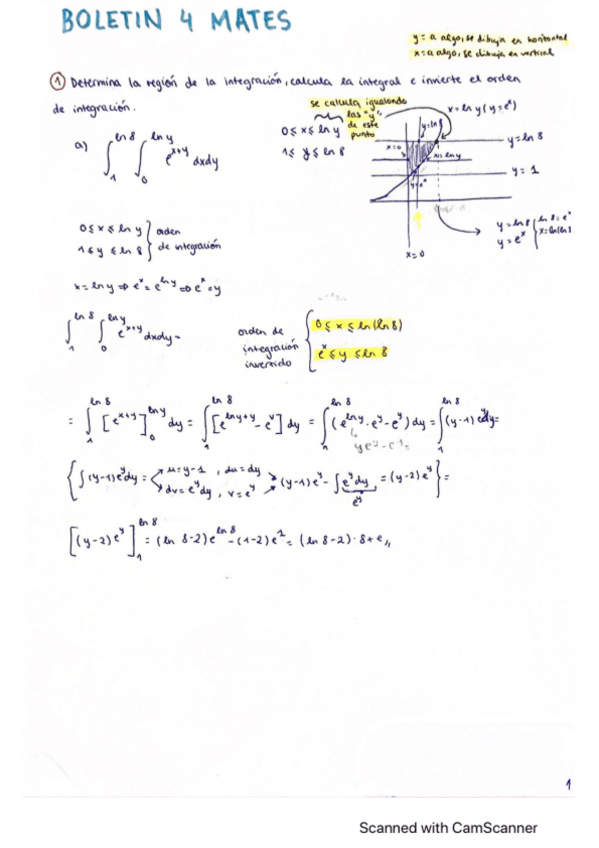 BOLETIN 4 MATES
y = a algo, se dibuja en horizontal
x = a algo, se dibuja en vertical
① Determina la región de la integración, calcula la integral e invierte el orden
de integración.
se calcula igualando
las "y"
de este
punto
x = ln y (y = eˣ)
a) ∫₁^{ln 8} ∫₀^{ln y} e^{x+y} dxdy
0 ≤ x ≤ ln y
1 ≤ y ≤ ln 8
x=0
x = ln y
y = ln 8
y = 1
y=eˣ
x = 0
y = ln 8
y = eˣ
ln 8 = eˣ
0 ≤ x ≤ ln y
1 ≤ y ≤ ln 8
orden
de integración
x = ln y ⇒ eˣ = e^{ln y} ⇒ eˣ = y
∫₁^{ln 8} ∫₀^{ln y} e^{x+y} dxdy =
orden de
integración
invertido
0 ≤ x ≤ ln(ln 8)
eˣ ≤ y ≤ ln 8
= ∫₁^{ln 8} [e^{x+y}]₀^{ln y} dy = ∫₁^{ln 8} [e^{ln y + y} - e^y] dy = ∫₁^{ln 8} (e^{ln y} · e^y - e^y) dy = ∫₁^{ln 8} (y-1) e^y dy =
{∫(y-1)e^y dy = < u = y-1, du = dy
dv = e^y dy, v = e^y > (y-1)e^y - ∫e^y dy = (y-2)e^y} =
e^y
[(y-2)e^y]₁^{ln 8} = (ln 8-2)e^{ln 8} - (1-2)e¹ = (ln 8-2)·8+e,,
1
Scanned with CamScanner